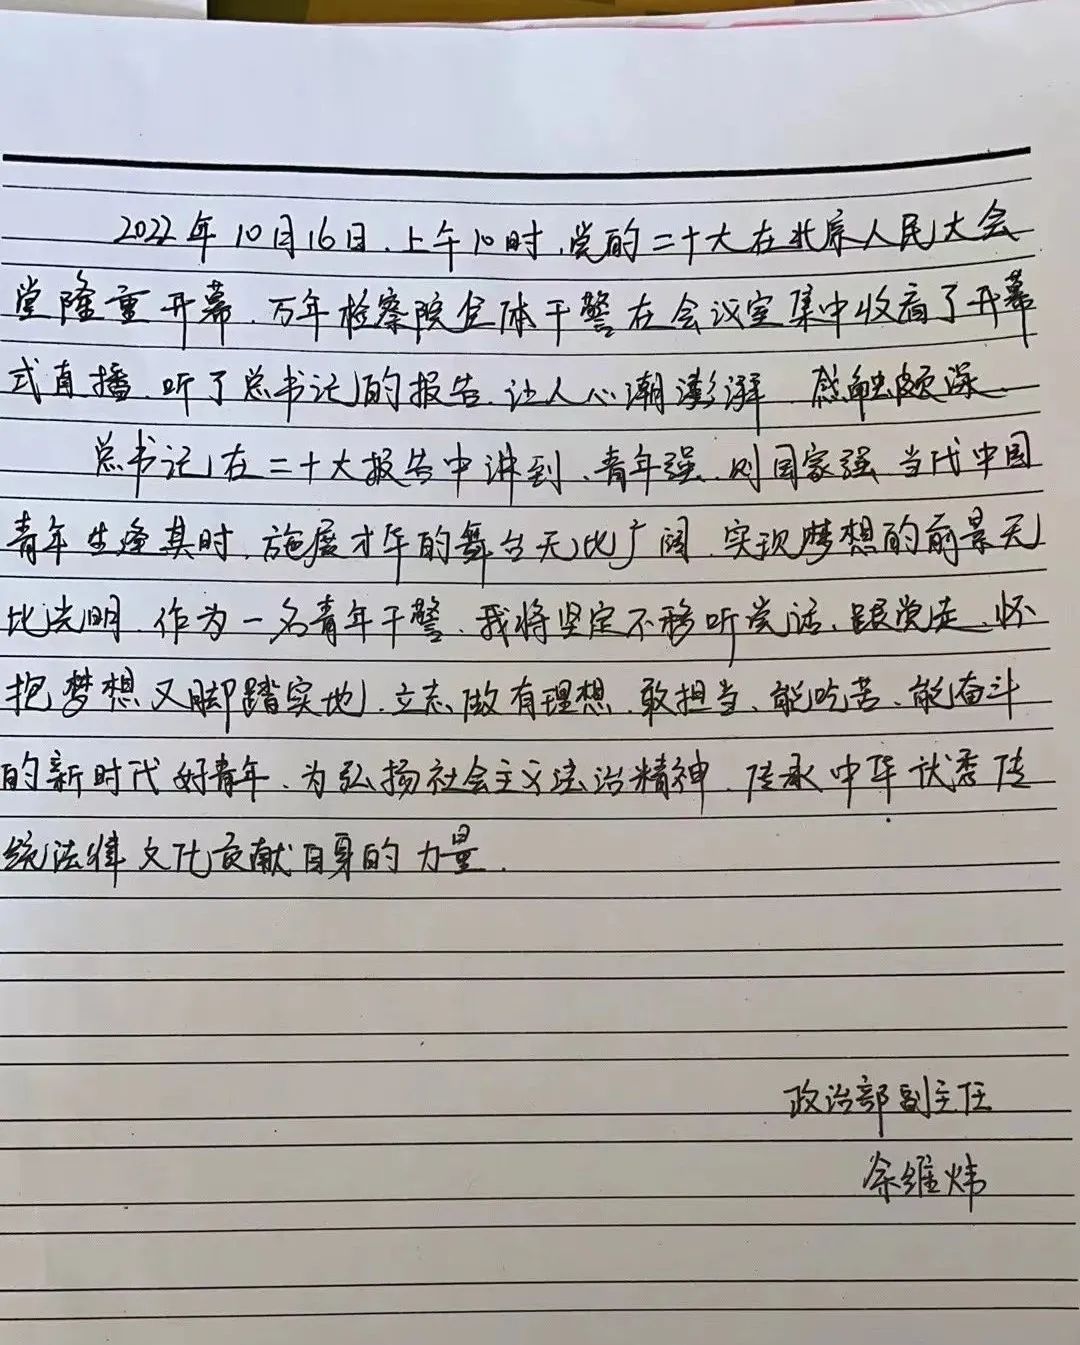 2022年10月16日,上午10时,党的二十大在北京人民大会
堂隆重开幕,万年检察院全体干警在会议室集中收看了开幕
式直播,听了总书记的报告,让人心潮澎湃,感触颇深.
总书记在二十大报告中讲到,青年强,则国家强,当代中国
青年生逢其时,施展才华的舞台无比广阔,实现梦想的前景无
比光明.作为一名青年干警,我将坚定不移听党话、跟党走,怀
抱梦想又脚踏实地,立志做有理想、敢担当、能吃苦、能奋斗
的新时代好青年,为弘扬社会主义法治精神,传承中华优秀传
统法律文化贡献自身的力量.
政治部副主任
余维炜